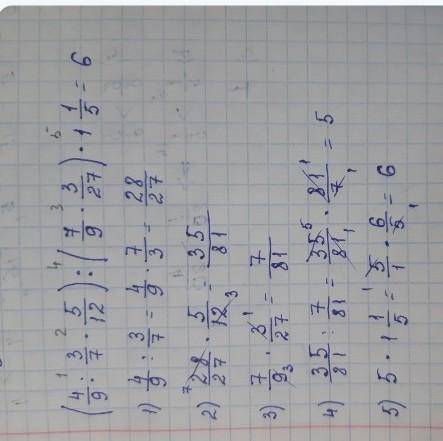 (4/9 :¹ 3/7 ·² 5/12) :⁴ (7/9 ·³ 3/27) ·⁵ 1 1/5 = 6
1) 4/9 : 3/7 = 4/9 · 7/3 = 28/27
2) ⁷28/27 · 5/12₃ = 35/81
3) 7/9₃ · 3¹/27 = 7/81
4) 35/81 : 7/81 = 35⁵/81₁ · 81¹/7₁ = 5
5) 5 · 1 1/5 = ¹5/1 · 6/5₁ = 6